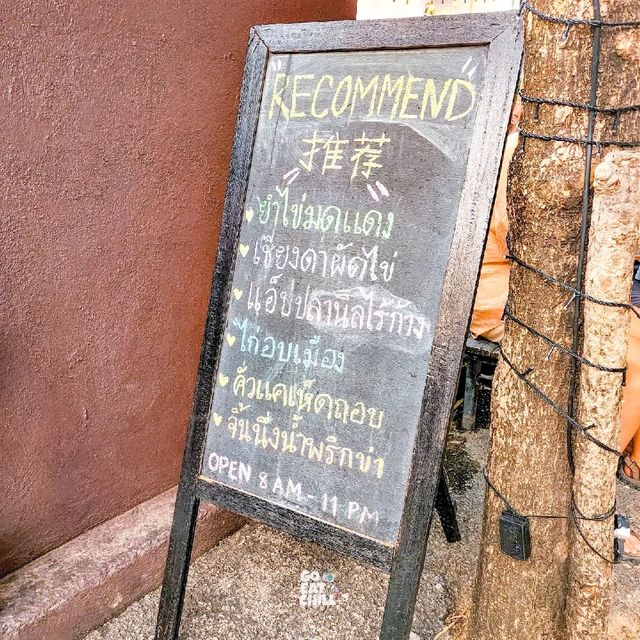 RECOMMEND
推荐
ยำไข่มดแดง
เชียงดาผัดไข่
แอ็บปลานิลไร้ก้าง
ไก่อบเมือง
คั่วแคเห็ดถอบ
จิ้นนึ่งน้ำพริกข่า
OPEN 8 AM - 11 PM
GO
EAT
CHILL